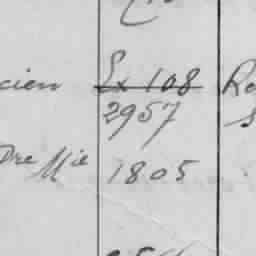 cien Lx 108 Re
2957
Dre Mie 1805